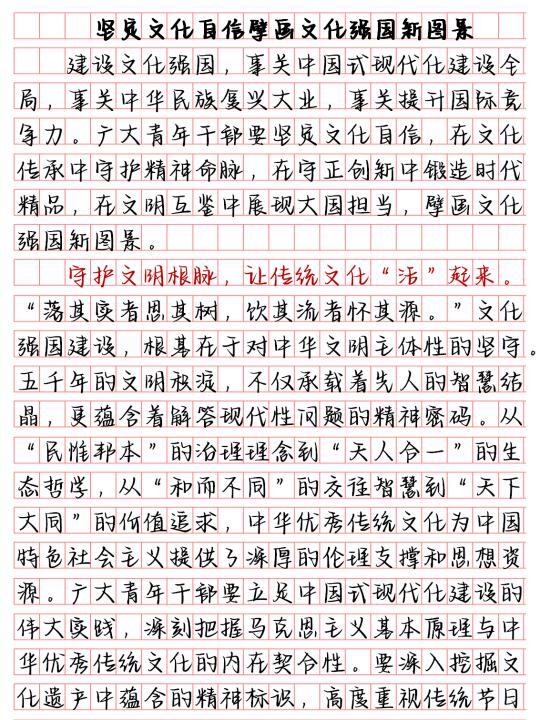 坚定文化自信擘画文化强国新图景
建设文化强国，事关中国式现代化建设全
局，事关中华民族复兴大业，事关提升国际竞
争力。广大青年干部要坚定文化自信，在文化
传承中守护精神命脉，在守正创新中锻造时代
精品，在文明互鉴中展现大国担当，擘画文化
强国新图景。
守护文明根脉，让传统文化“活”起来。
“落其实者思其树，饮其流者怀其源。”文化
强国建设，根基在于对中华文明主体性的坚守。
五千年的文明积淀，不仅承载着先人的智慧结
晶，更蕴含着解答现代性问题的精神密码。从
“民惟邦本”的治理理念到“天人合一”的生
态哲学，从“和而不同”的交往智慧到“天下
大同”的价值追求，中华优秀传统文化为中国
特色社会主义提供了深厚的伦理支撑和思想资
源。广大青年干部要立足中国式现代化建设的
伟大实践，深刻把握马克思主义基本原理与中
华优秀传统文化的内在契合性。要深入挖掘文
化遗产中蕴含的精神标识，高度重视传统节日